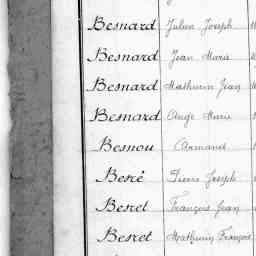 Besnard Julien Joseph
Besnard Jean Marie
Besnard Mathurin Jean
Besnard Ange Marie
Besnou Armand
Besré Pierre Joseph
Besret François Jean
Besret Mathurin François